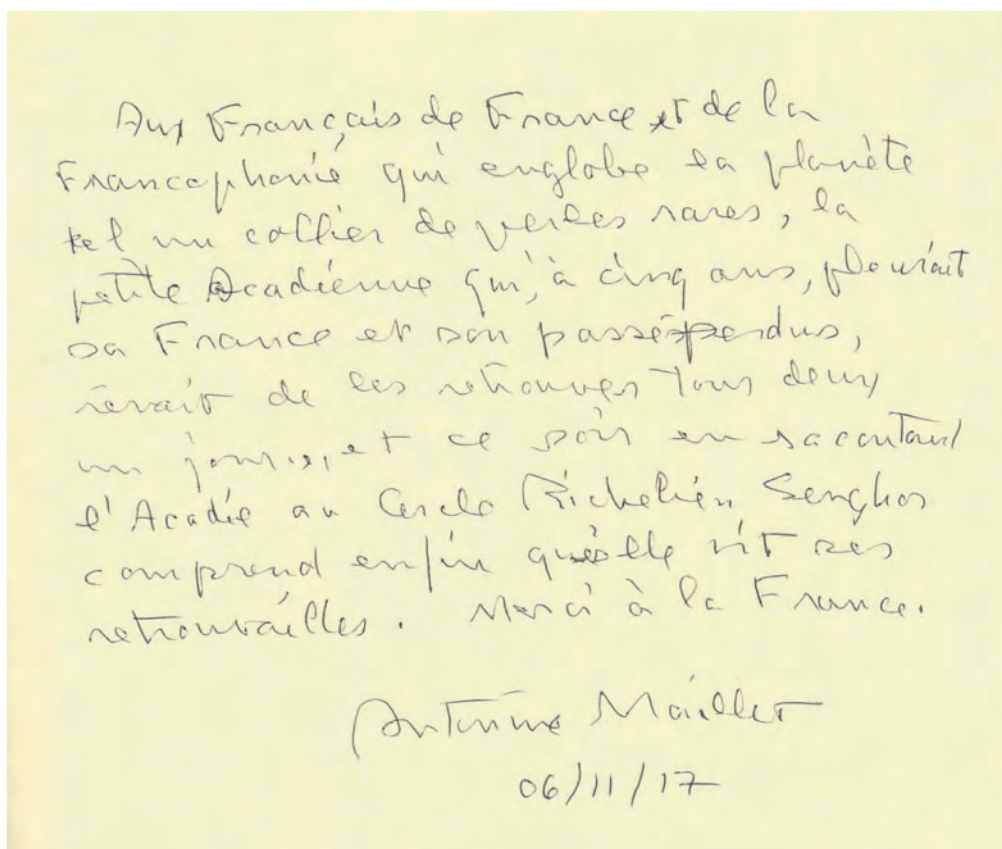 Aux Français de France et de la
Francophonie qui englobe la planète
tel un collier de perles rares, la
petite Acadienne qui, à cinq ans, pleurait
sa France et son passé perdus,
rêvait de les retrouver tous deux
un jour..., et ce soir en racontant
l'Acadie au Cercle Richelieu Senghor
comprend enfin qu'elle vit ses
retrouvailles. Merci à la France.
Antonine Maillet
06/11/17